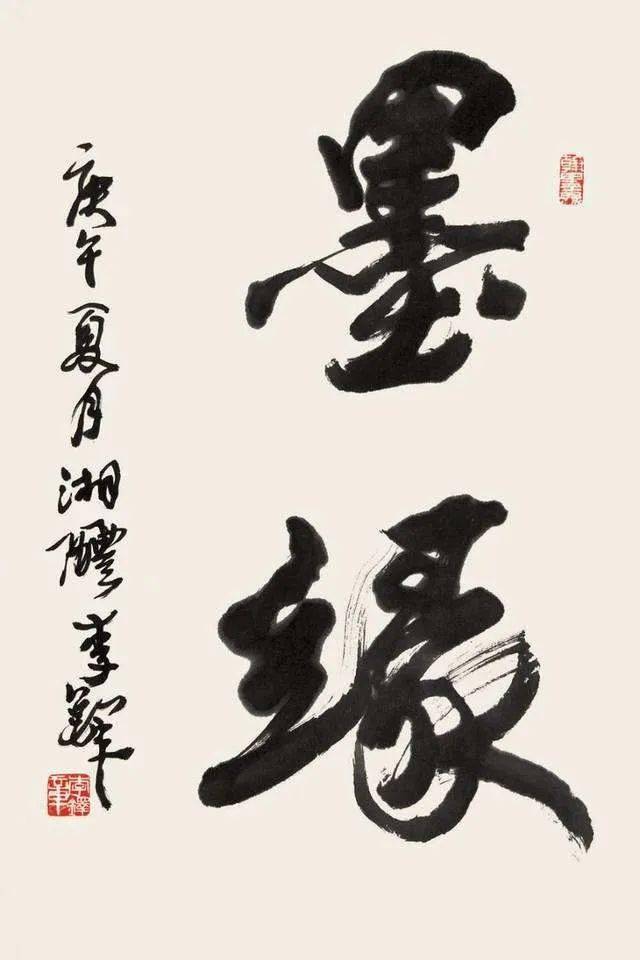 墨缘
庚午夏月湘醴李铎